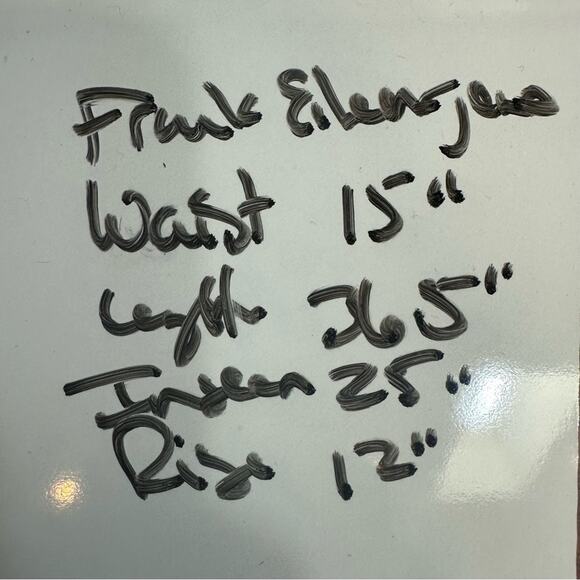 Frank Eileen jeans
Waist 15"
Length 36.5"
Inseam 25"
Rise 12"